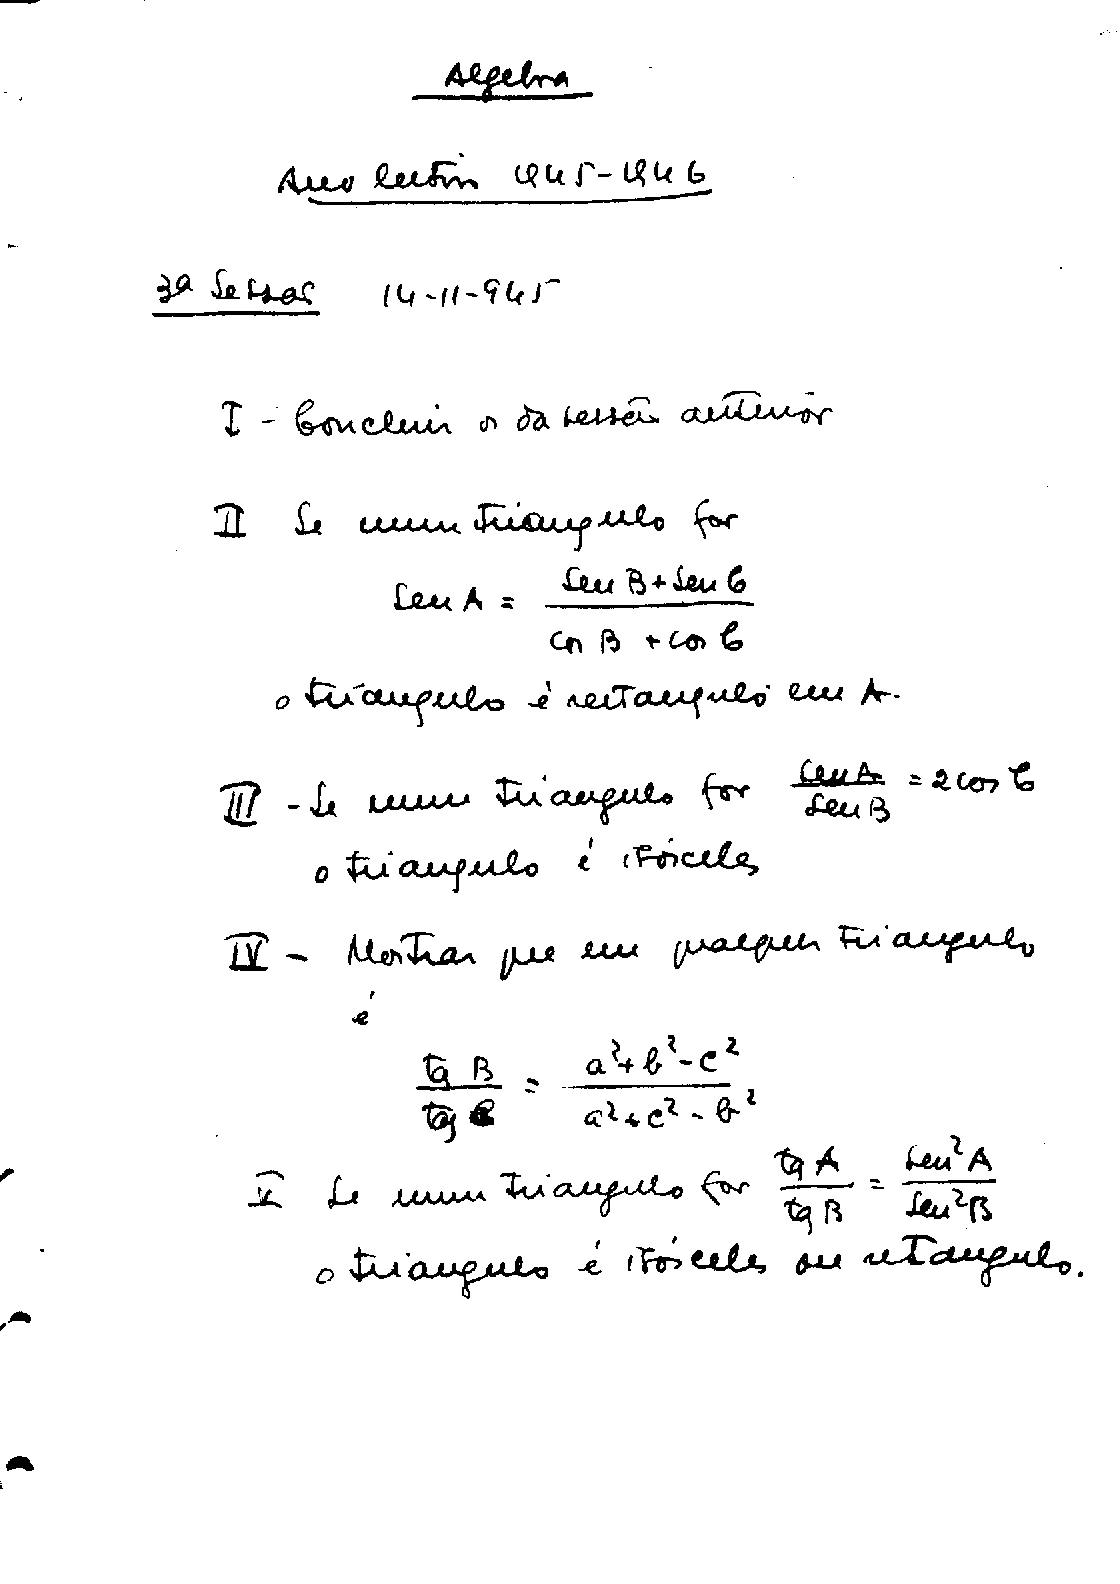 Algebra
Ano lectivo 1945-1946
3ª Sessão 14-11-945
I - Concluir o da sessão anterior
II Se num triangulo for
sen A = (sen B + sen C) / (cos B + cos C)
o triangulo é rectangulo em A.
III - Se num triangulo for sen A / sen B = 2 cos C
o triangulo é isósceles
IV - Mostrar que em qualquer triangulo
é
tg B / tg C = (a² + b² - c²) / (a² + c² - b²)
V Se num triangulo for tg A / tg B = sen² A / sen² B
o triangulo é isósceles ou retangulo.